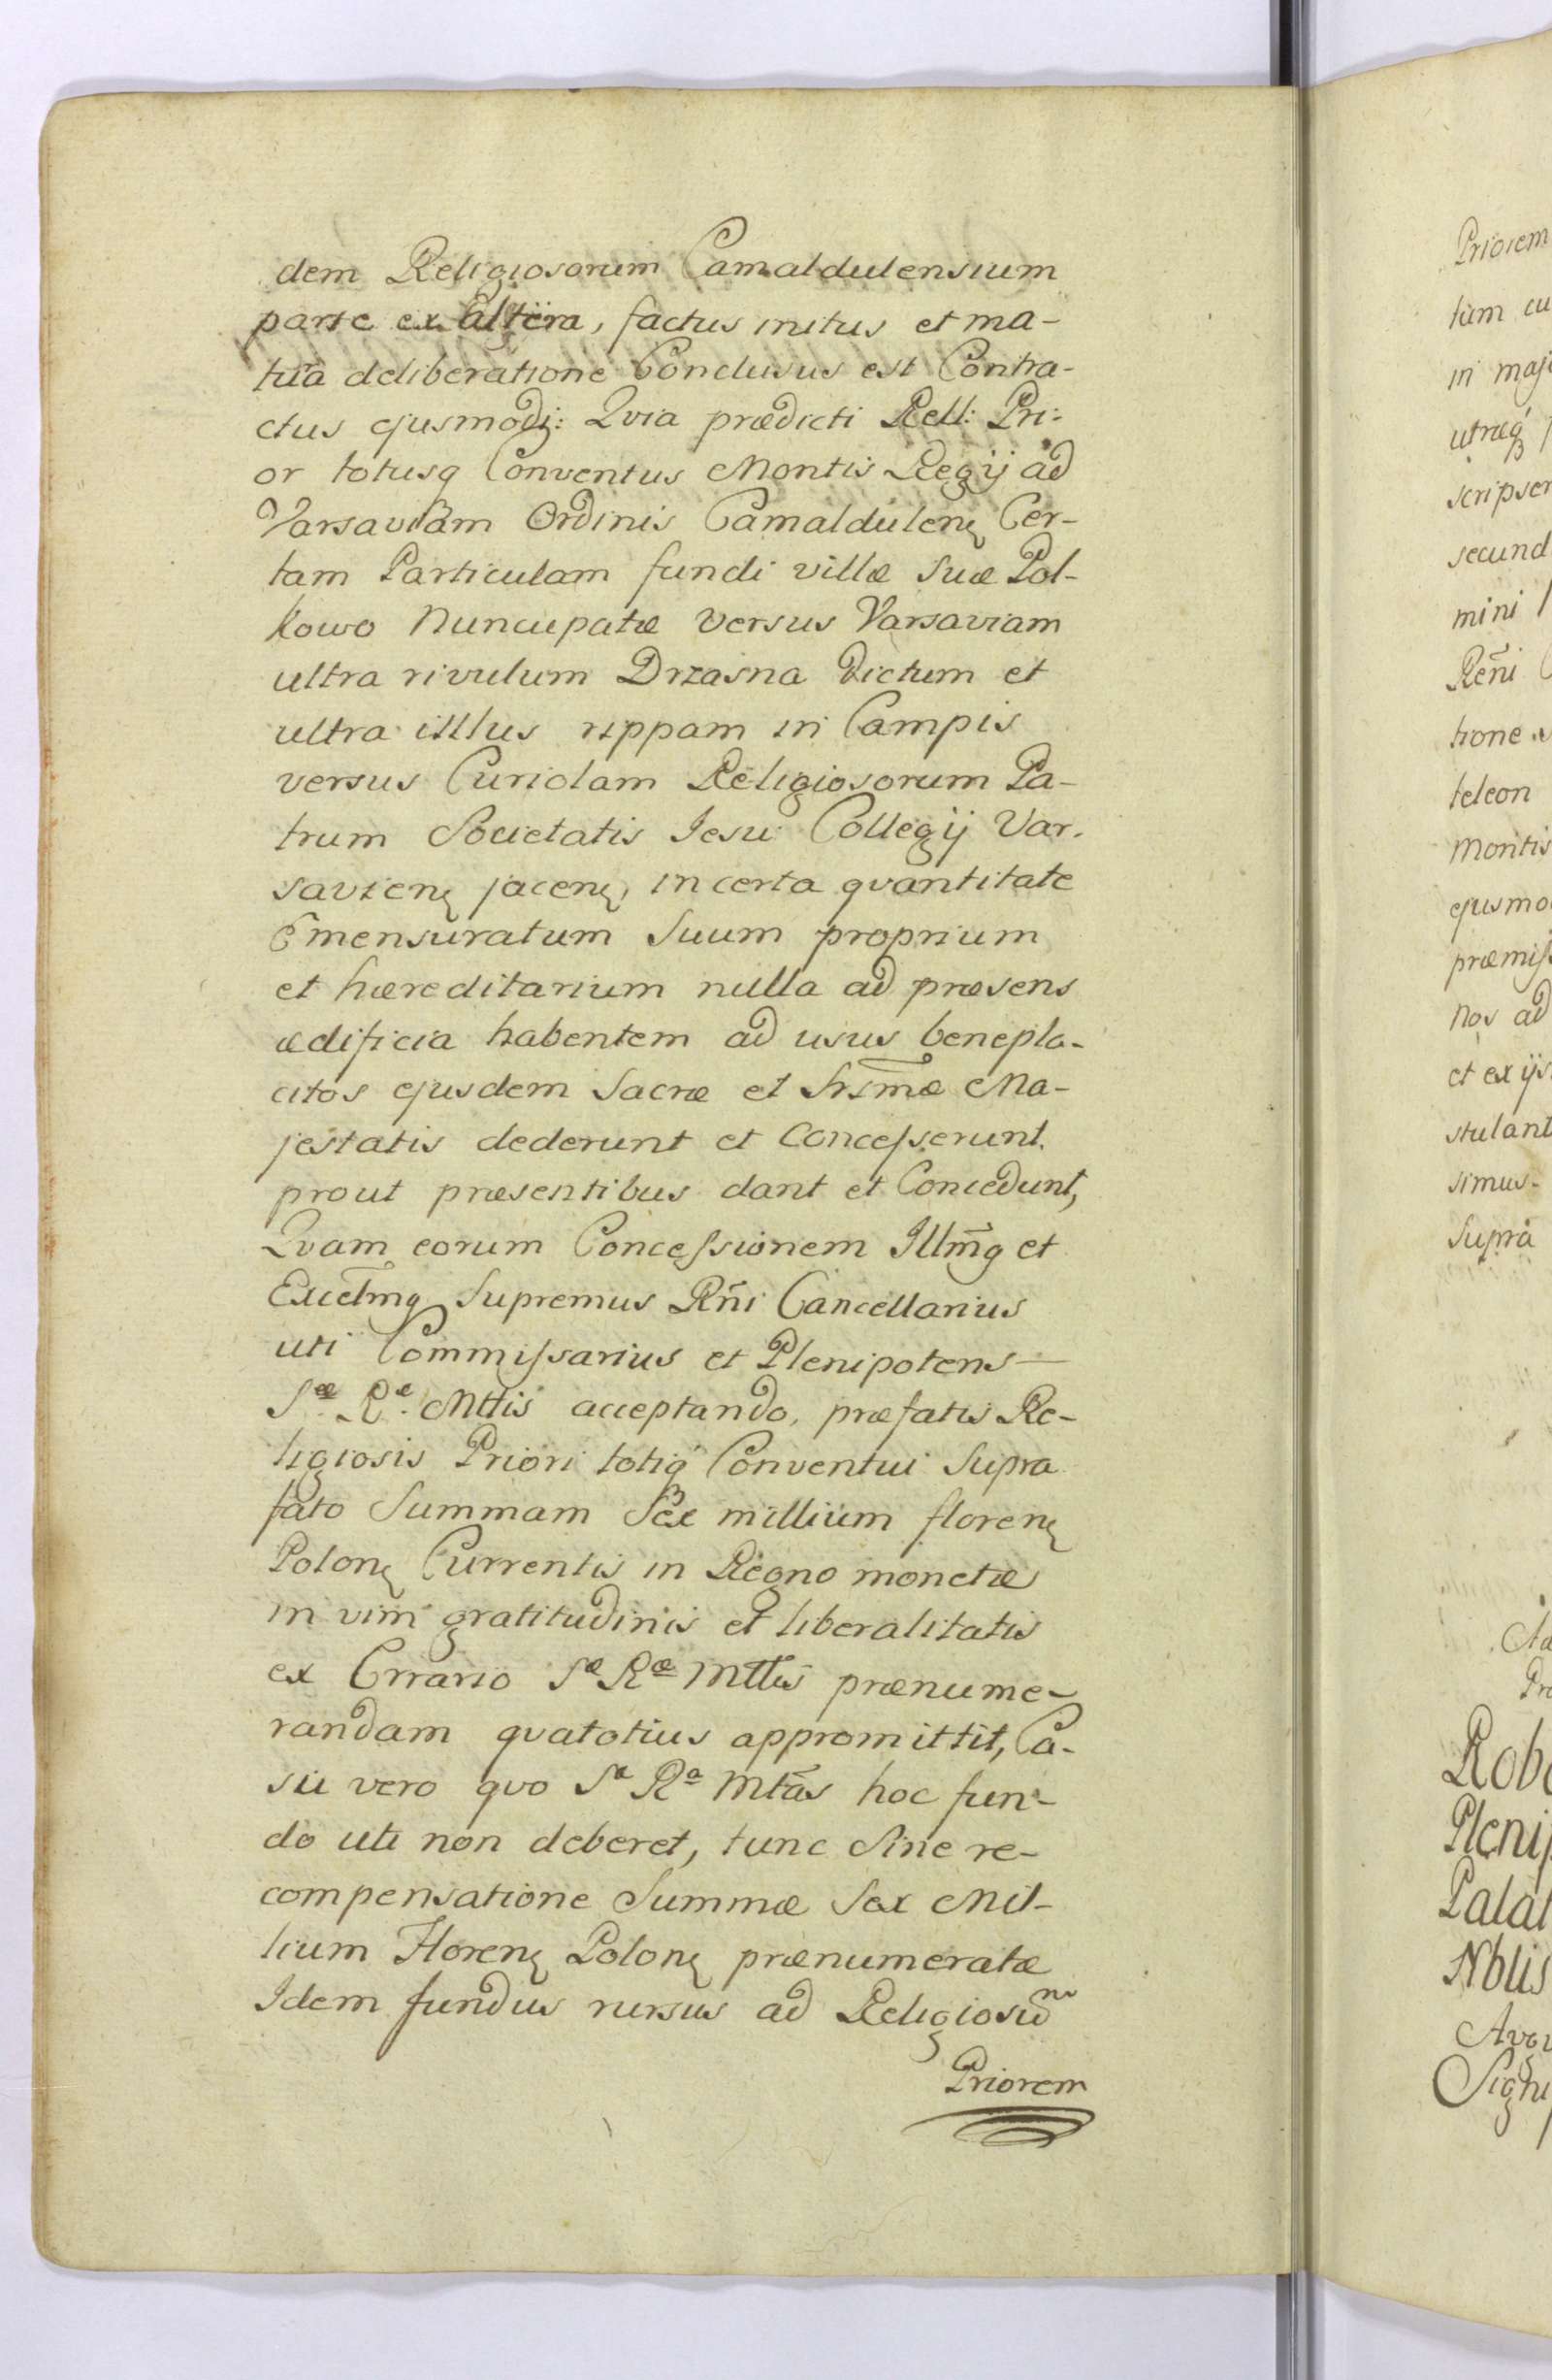 dem Religiosorum Camaldulensium
parte ex Altera, factus initus et ma-
tura deliberatione Conclusus est Contra-
ctus ejusmodj: Qvia prædicti Rell: Pri-
or totusq Conventus Montis Regij ad
Varsaviam Ordinis Camaldulenę Cer-
tam Particulam fundi villæ Suæ Pol-
kowo Nuncupatæ versus Varsaviam
ultra rivulum Drzasna dictum et
ultra illius rippam in Campis
versus Curiolam Religiosorum Pa-
trum Societatis Jesu Collegij Var-
savienę jacenę, in certa qvantitate
Emensuratum Suum proprium
et hæreditarium nulla ad præsens
ædificia habentem ad usus benepla-
citos ejusdem Sacræ et Srsmæ Ma-
jestatis dederunt et Concesserunt.
prout præsentibus dant et Concedunt,
Qvam eorum Concessionem Illm̃q et
Excelm̃q Supremus Rñi Cancellarius
uti Commissarius et Plenipotens—
Sæ Ræ Mttis acceptando, præfatis Re-
ligiosis Priori totiq Conventui Supra
fato Summam Sex millium florenę
Polonę Currentis in Regno monetæ
in vim gratitudinis et liberalitatis
ex Errario Sæ Ræ Mttis prænume-
randam qvatotius appromittit, Ca-
su vero qvo Sa Ra Mtas hoc fun-
do uti non deberet, tunc Sine re-
compensatione Summæ Sex Mil-
lium Florenę Polonę prænumeratæ
Idem fundus rursus ad Religiosum
Priorem
Priorem
tum cu
in maj
utræq
scripser
secund
mini
Reñi
tione
teleon
Montis
ejusmo
præmis
nos ad
et ex ijs
stulant
simus.
Supra
Ad
Pr
Rob
Plenip
Palat
Nblis
Avgv
Sign